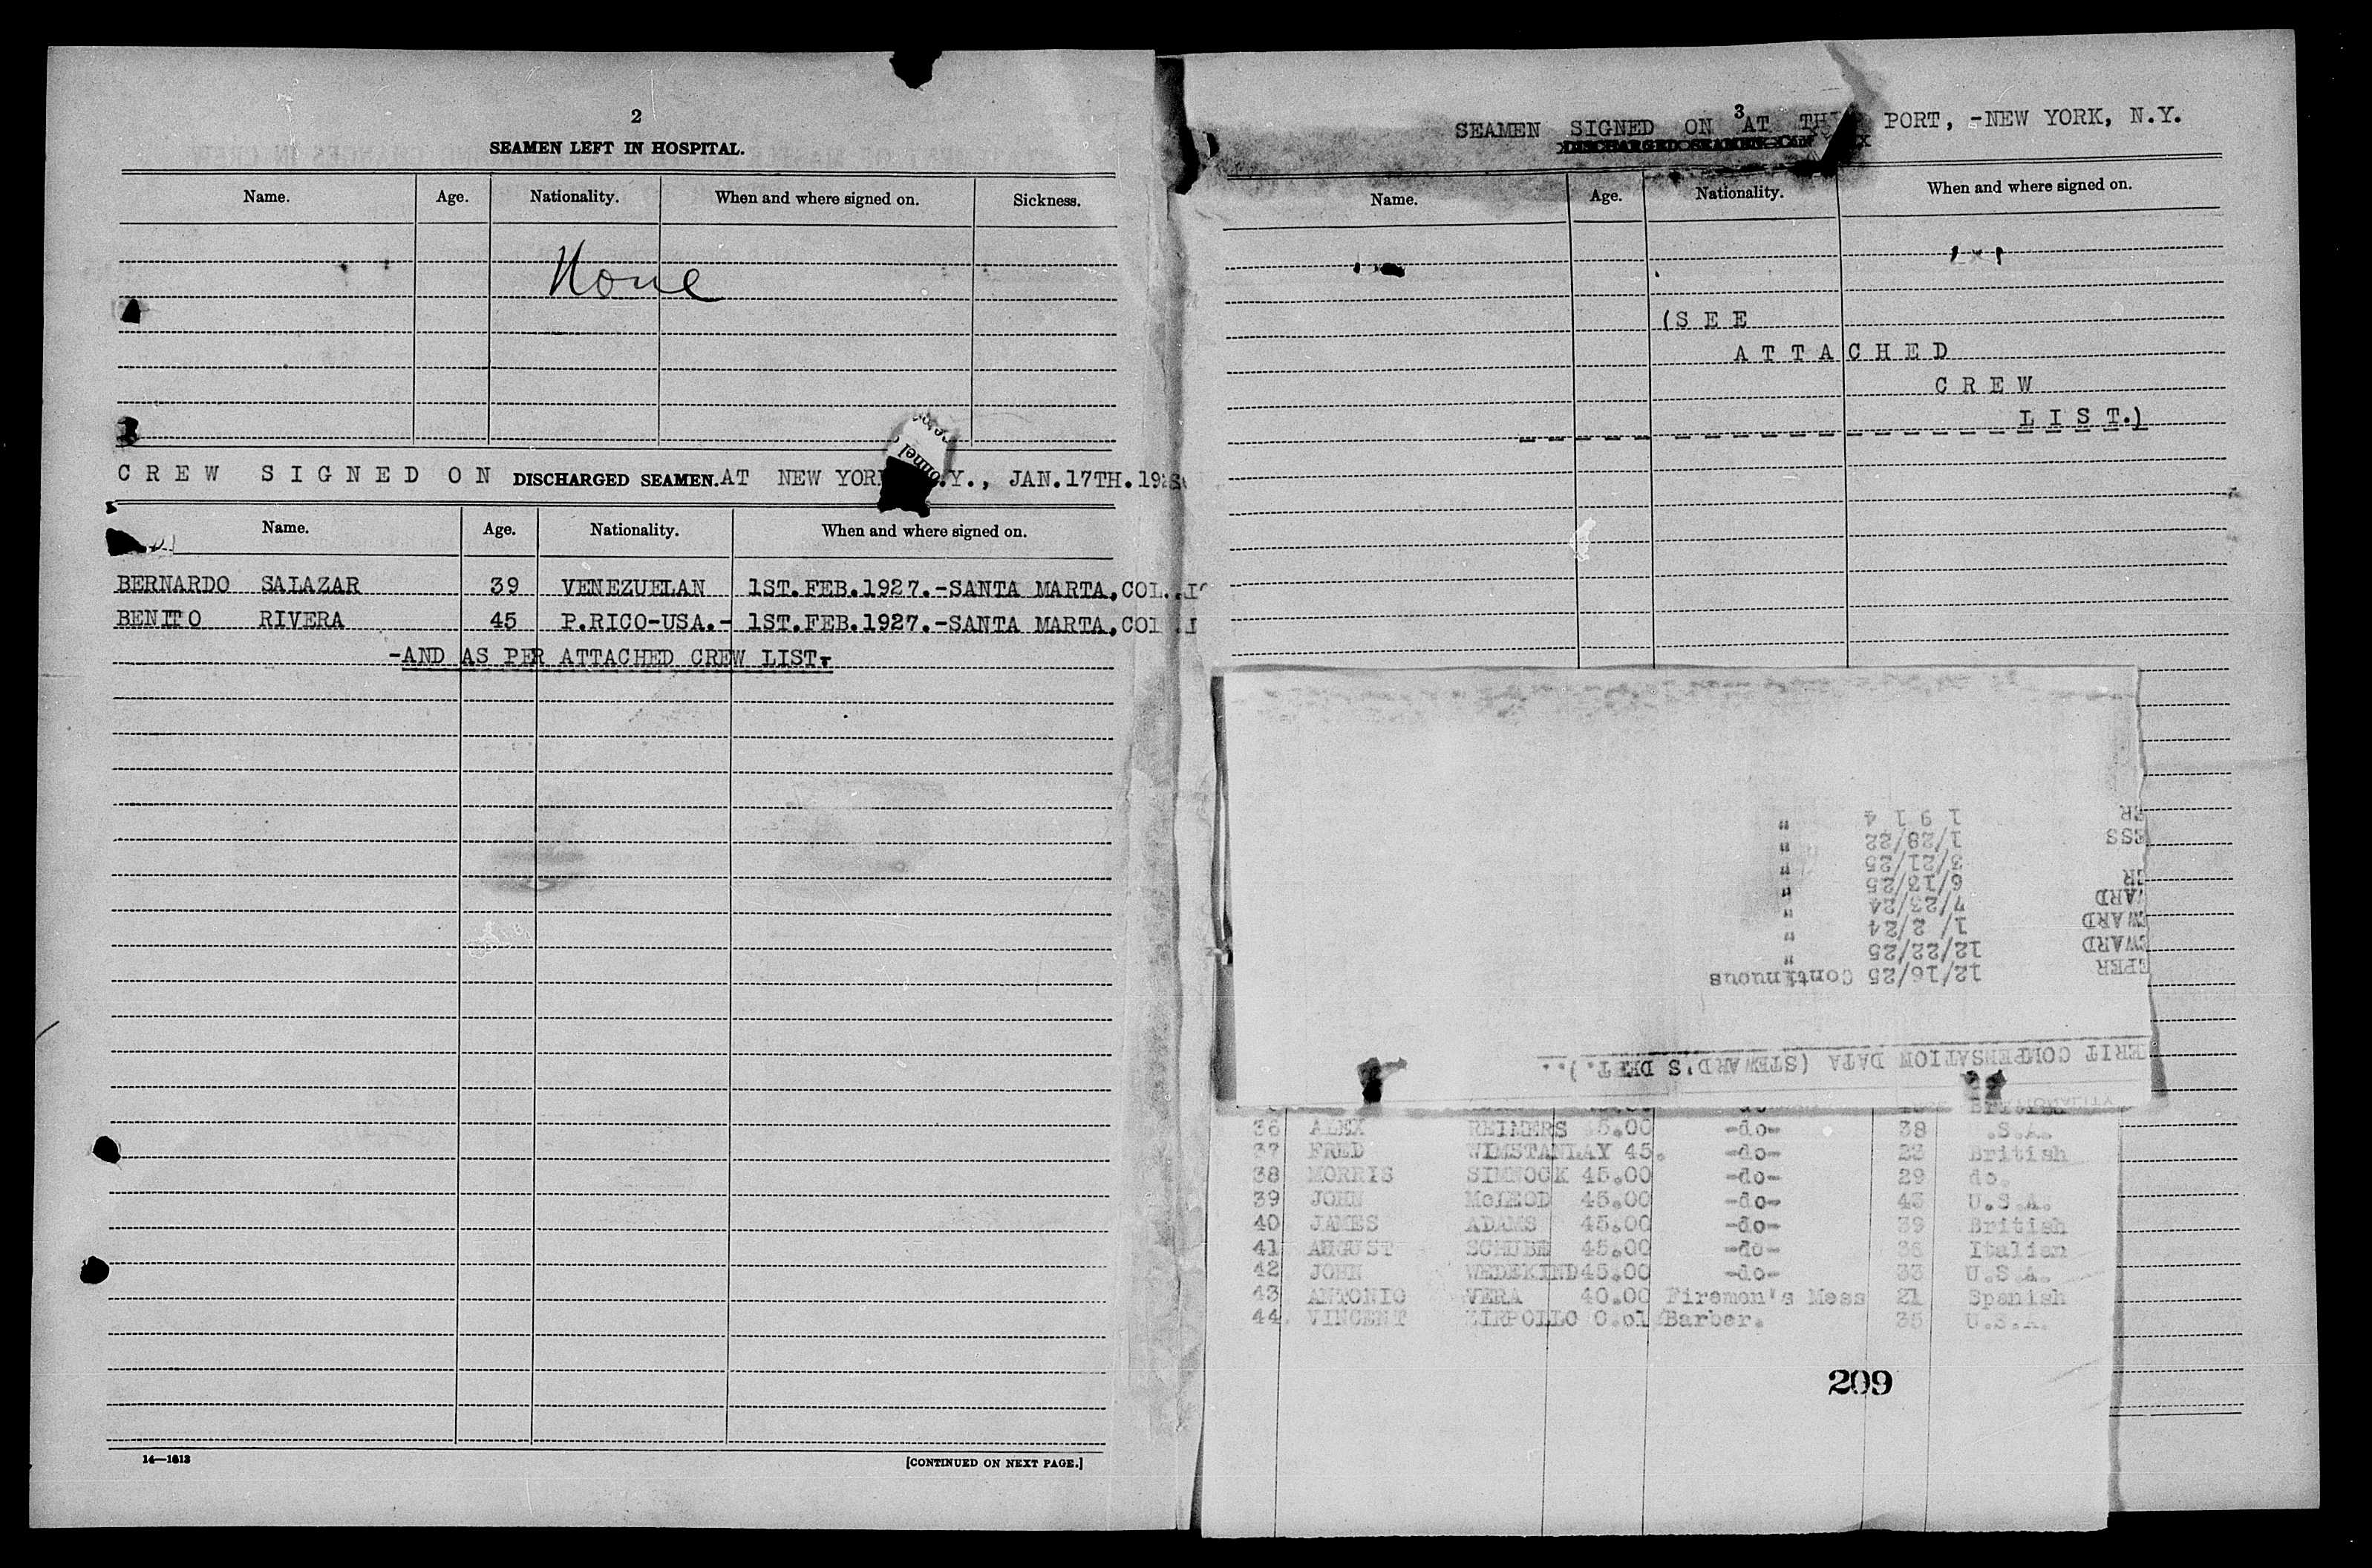 2
SEAMEN LEFT IN HOSPITAL.
Name. Age. Nationality. When and where signed on. Sickness.
None
CREW SIGNED ON DISCHARGED SEAMEN. AT NEW YOR .Y., JAN.17TH.19
Name. Age. Nationality. When and where signed on.
BERNARDO SALAZAR 39 VENEZUELAN 1ST.FEB.1927.-SANTA MARTA,COL.
BENITO RIVERA 45 P.RICO-USA.- 1ST.FEB.1927.-SANTA MARTA,CO
-AND AS PER ATTACHED CREW LIST.-
14—1813
[CONTINUED ON NEXT PAGE.]
3
SEAMEN SIGNED ON AT TH PORT, -NEW YORK, N.Y.
DISCHARGED SEAMEN—CON
Name. Age. Nationality. When and where signed on.
(SEE
ATTACHED
CREW
LIST.)
ERIT COMPENSATION DATA (STEWARD'S DEPT.)..
EPER 12/16/25 Continuous
WARD 12/22/25 "
WARD 1/ 2/24 "
WARD 7/23/24 "
ER 6/13/25 "
3/21/25 "
ESS 1/28/22 "
ER 1 9 1 4 "
36 ALEX REIMERS 5.00 -do- 38 .S.A.
37 FRED WIMSTANLAY 45. -do- 23 British
38 MORRIS SIMNOCK 45.00 -do- 29 do.
39 JOHN McLEOD 45.00 -do- 43 U.S.A.
40 JAMES ADAMS 45.00 -do- 39 British
41 AUGUST SCHUBE 45.00 -do- 36 Italian
42 JOHN WEDEKIND 45.00 -do- 33 U.S.A.
43 ANTONIO VERA 40.00 Firemon's Mess 21 Spanish
44. VINCENT ZIRPOLLO 0.01 Barber. 35 U.S.A.
209